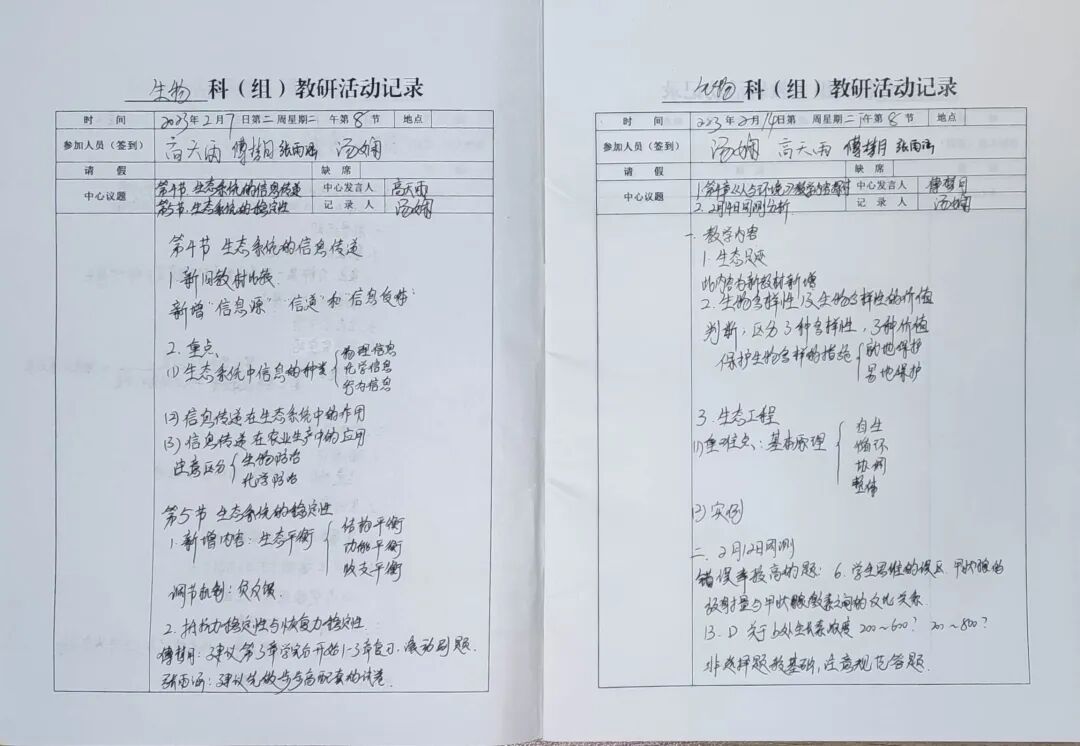 生物 科（组）教研活动记录
时 间 2023年2月7日第二 周星期二 午第8节 地点
参加人员（签到） 高天雨 傅哲月 张雨涵 汤娴
请 假 缺 席
中心议题 第4节 生态系统的信息传递 中心发言人 高天雨
第5节 生态系统的稳定性 记 录 人 汤娴
第4节 生态系统的信息传递
1. 新旧教材比较
新增"信息源" "信道"和"信息受体"
2. 重点
(1) 生态系统中信息的种类 { 物理信息
化学信息
行为信息
(2) 信息传递在生态系统中的作用
(3) 信息传递在农业生产中的应用
注意区分 { 生物防治
化学防治
第5节 生态系统的稳定性
1. 新增内容: 生态平衡 { 结构平衡
功能平衡
收支平衡
调节机制: 负反馈
2. 抵抗力稳定性与恢复力稳定性
傅哲月: 建议第3章学完后开始1-3章复习. 滚动刷题.
张雨涵: 建议先做步步高配套的试卷.
生物 科（组）教研活动记录
时 间 2023年2月14日第 周星期二 午第8节 地点
参加人员（签到） 汤娴 高天雨 傅哲月 张雨涵
请 假 缺 席
中心议题 1. 第4章《人与环境》教学内容 中心发言人 傅哲月
2. 2月 周测分析 记 录 人 汤娴
一. 教学内容
1. 生态足迹
此内容为新教材新增
2. 生物多样性及生物多样性的价值
判断, 区分3种多样性, 3种价值
保护生物多样的措施 { 就地保护
易地保护
3. 生态工程
(1) 重难点: 基本原理 { 自生
循环
协调
整体
(2) 实例
二. 2月12日周测
错误率较高的题: 6. 学生思维的误区. 甲状腺的
放射量与甲状腺激素之间的反比关系.
13. D 关于b处生长素浓度 200～600? 200～800?
非选择题较基础, 注意规范答题.